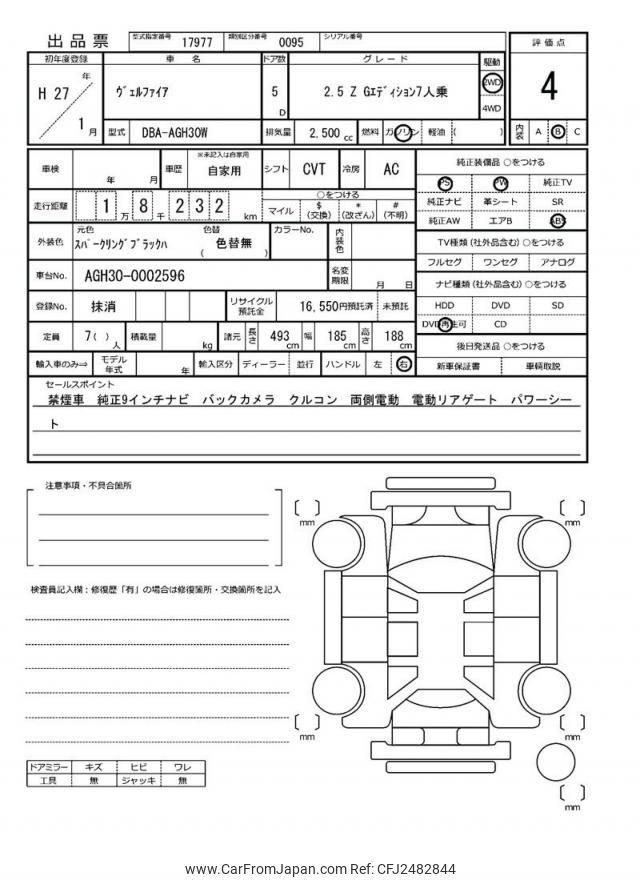 出品票 型式指定番号 17977 類別区分番号 0095 シリアル番号
評価点
4
内装 A B C
初年度登録 車名 ドア数 グレード 駆動
H 27 年 1 月 ヴェルファイア 5 D 2.5 Z Gエディション7人乗 2WD 4WD
型式 DBA-AGH30W 排気量 2,500 cc 燃料 ガソリン 軽油 ( )
車検 年 月 車歴 ※未記入は自家用 自家用 シフト CVT 冷房 AC
走行距離 1 万 8 千 2 3 2 km ○をつける マイル $ (交換) * (改ざん) # (不明)
外装色 元色 スパークリングブラックハ 色替 ( 色替無 ) カラーNo. 内装色
車台No. AGH30-0002596 名変期限 月 日
登録No. 抹消 リサイクル預託金 16,550円預託済 未預託
定員 7( ) 人 積載量 kg 諸元 長さ 493 cm 幅 185 cm 高さ 188 cm
輸入車のみ⇒ モデル年式 年 輸入区分 ディーラー 並行 ハンドル 左 右
純正装備品 ○をつける
PS PW 純正TV
純正ナビ 革シート SR
純正AW エアB ABS
TV種類 (社外品含む) ○をつける
フルセグ ワンセグ アナログ
ナビ種類 (社外品含む) ○をつける
HDD DVD SD
DVD再生可 CD
後日発送品 ○をつける
新車保証書 車輌取説
セールスポイント
禁煙車 純正9インチナビ バックカメラ クルコン 両側電動 電動リアゲート パワーシー
ト
注意事項・不具合箇所
検査員記入欄：修復歴「有」の場合は修復箇所・交換箇所を記入
ドアミラー キズ ヒビ ワレ
工具 無 ジャッキ 無
mm
mm
mm
mm
mm
www.CarFromJapan.com Ref: CFJ2482844